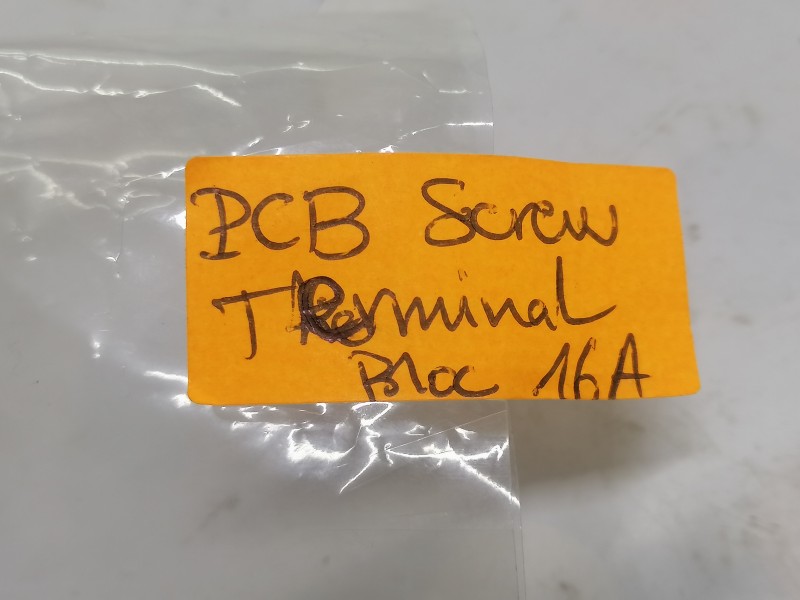 PCB Screw
Terminal
Bloc 16A